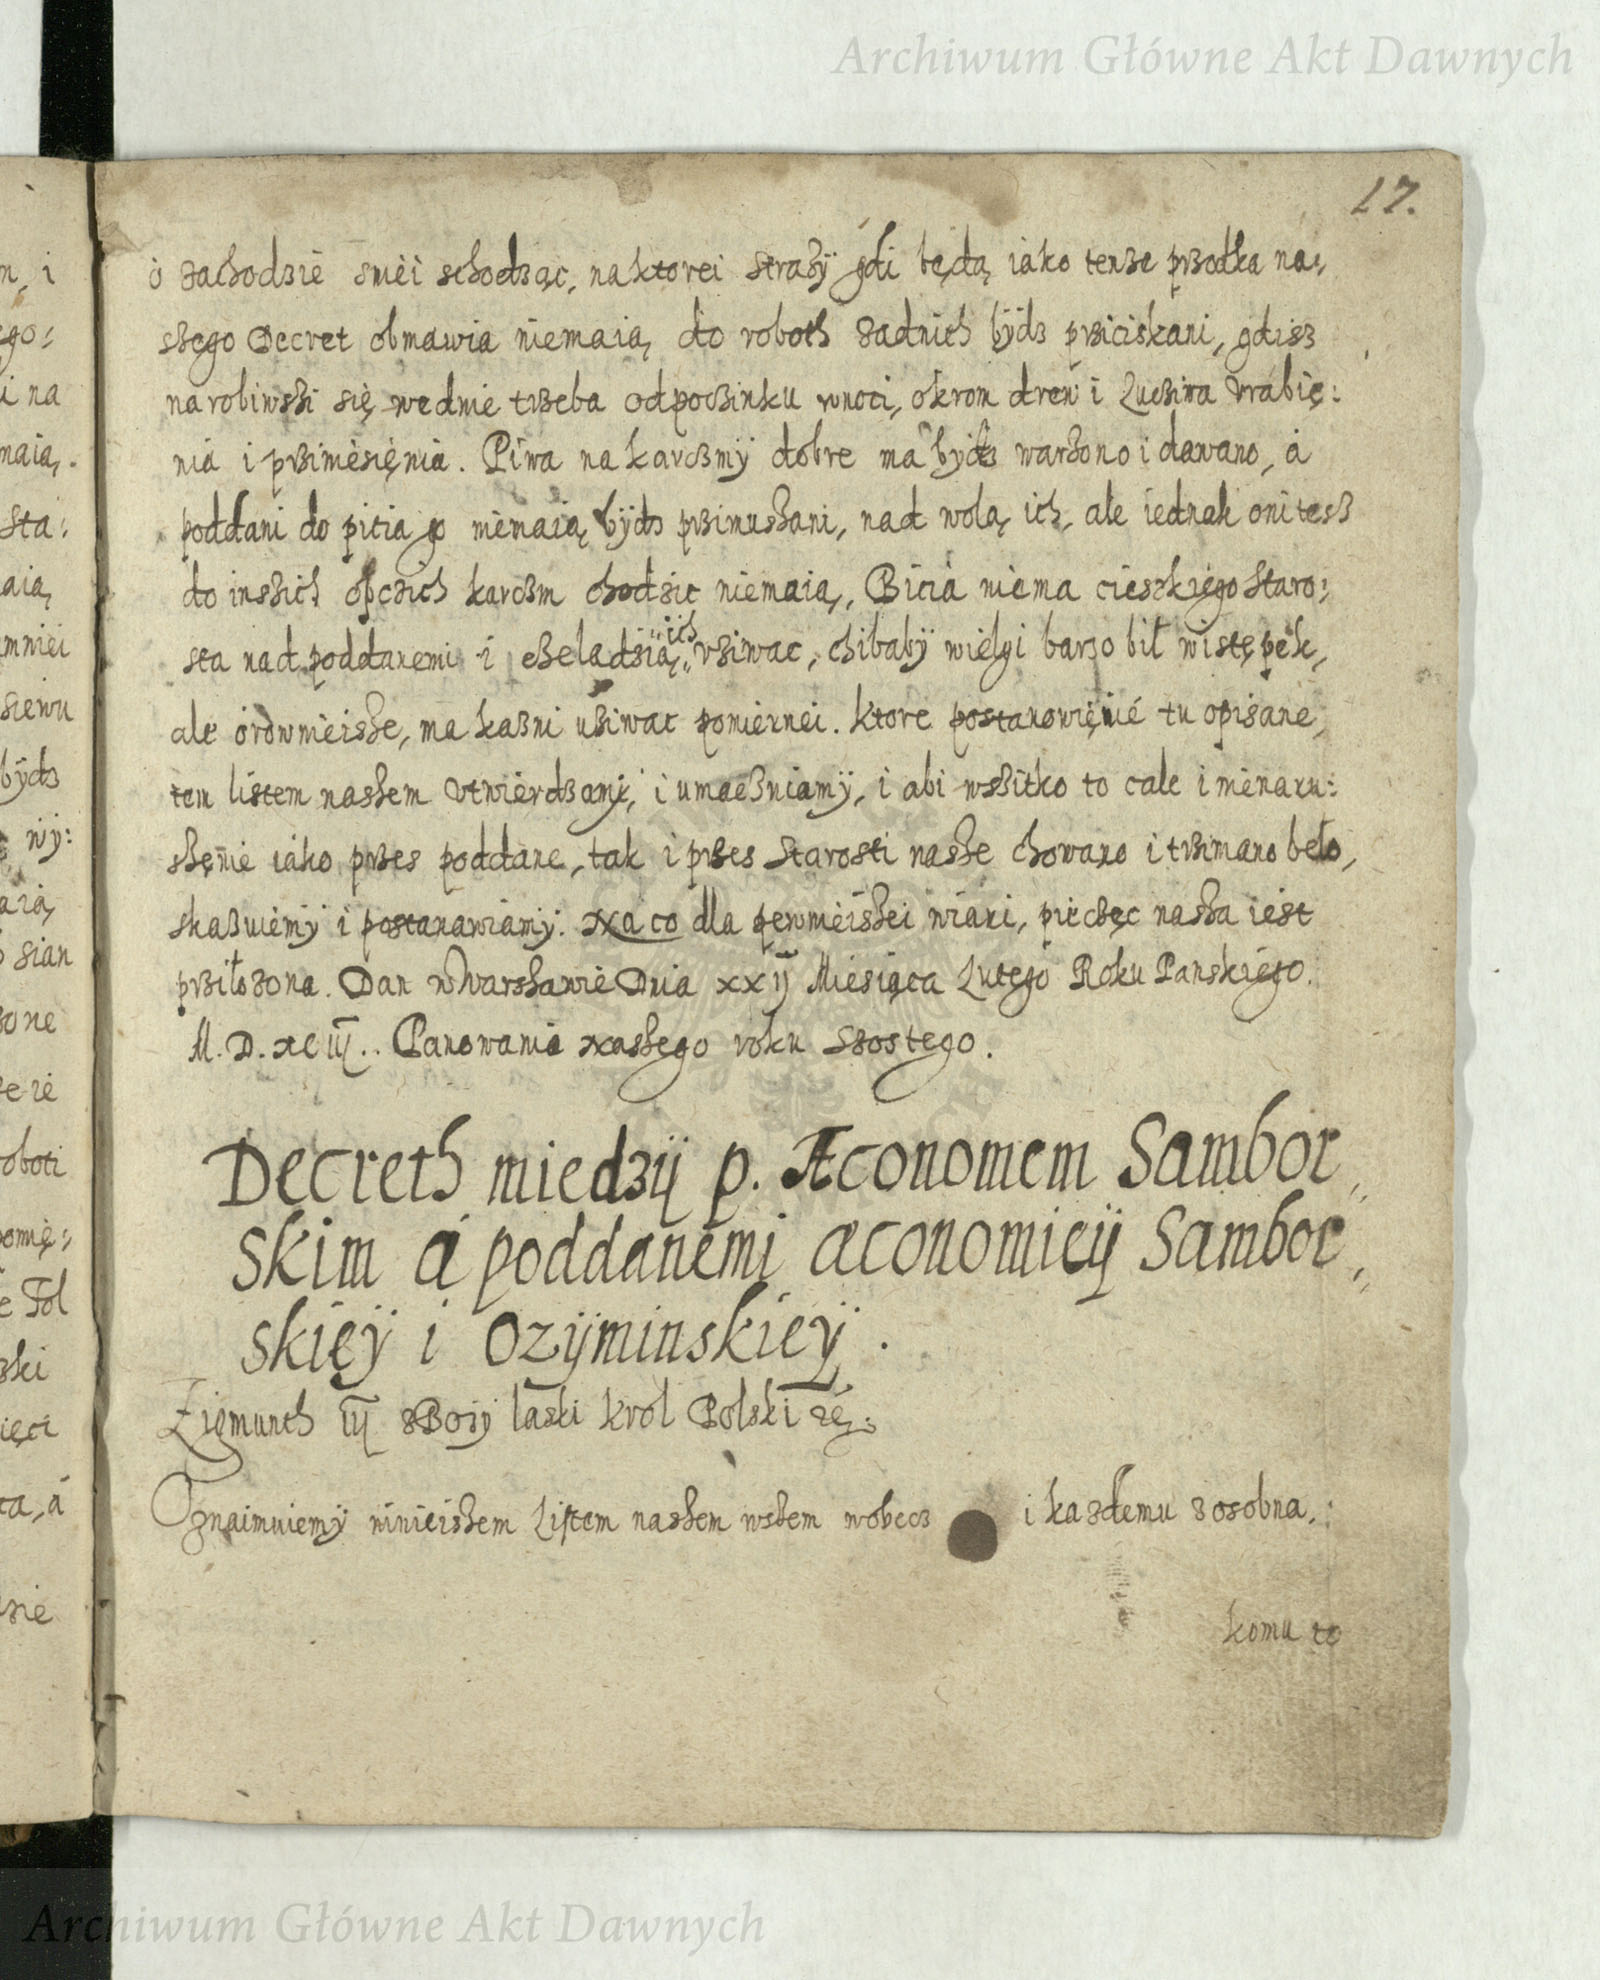 Archiwum Główne Akt Dawnych
17.
o zachodzie snei schodząc, na ktorei straży gdi będą iako tenże przodka na:
szego Decret obmawia niemaią, do roboth żadnich bydź prziciskani, gdisz
narobiwszi się wednie trzeba odpoczinku wnoci, okrom drew i Łucziwa vrabię:
nia i przimesięnia. Piwa na karczmÿ dobre ma bydz warzono i dawano, á
poddani do picia go niemaią bÿdz przimuszani, nad wolą ich, ale iednak oni tesz
do inszich opczich karczm chodzic niemaią, Bicia niema cieszkiego Staro:
sta nad poddanemi i czeladzią ich vżiwac, chibabÿ wielgi barzo bił wistępek,
ale orownieisze, ma kazni użiwac pomiernei. Ktore postanowięnié tu opisane,
tem listem naszem vtwierdzamÿ, i umaczniamÿ, i abi wszitko to cale i mienaru:
szęnie iako przes poddane, tak i przes Starosti nasze chowano i trzimano beło,
skazuiemÿ i postanawiamÿ. Na co dla pewnieiszei wiari, pieczęc nasza iest
prziłożona. Dan wWarszawie Dnia xxij Miesiąca Lutego Roku Panskiego.
M.D.xciij.. Panowania Naszego roku szostego.
Decreth miedzÿ p. Æconomem Sambor„
skim á poddanemi æconomieÿ Sambor„
skieÿ i Ozÿminskieÿ.
Zigmunth iij z Bożÿ łaski Krol Polski rę:
Oznaimuiemÿ ninieiszem Listem naszem wszem wobecz i każdemu z osobna,
komu to
Archiwum Główne Akt Dawnych